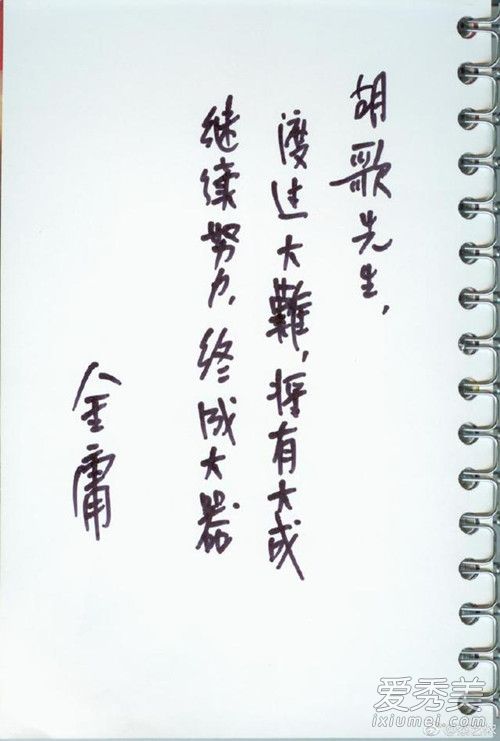 胡歌先生,
渡过大難,将有大成
继续努力,终成大器
金庸
爱秀美
ixiumei.com